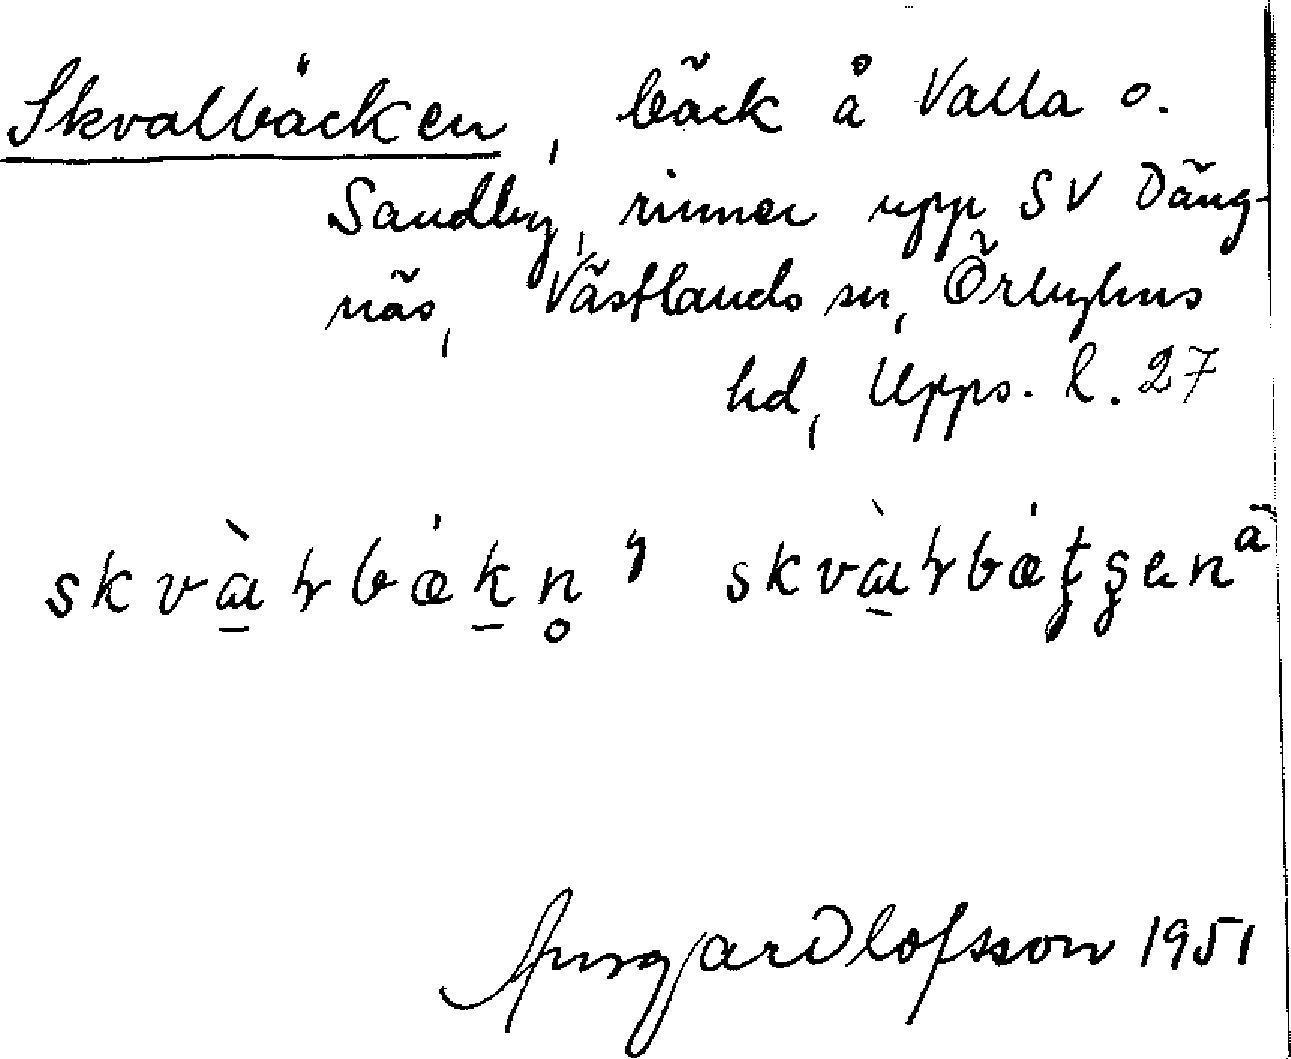 Skvalbäcken, bäck å Valla o.
Sandby, rinner upp SV Däng-
näs, Västlands sn, Örbyhus
hd, Upps. l. 27
skvàɽbǽkn̥ y skvàɽbǽtʂenä
Ansgar Olofsson 1951